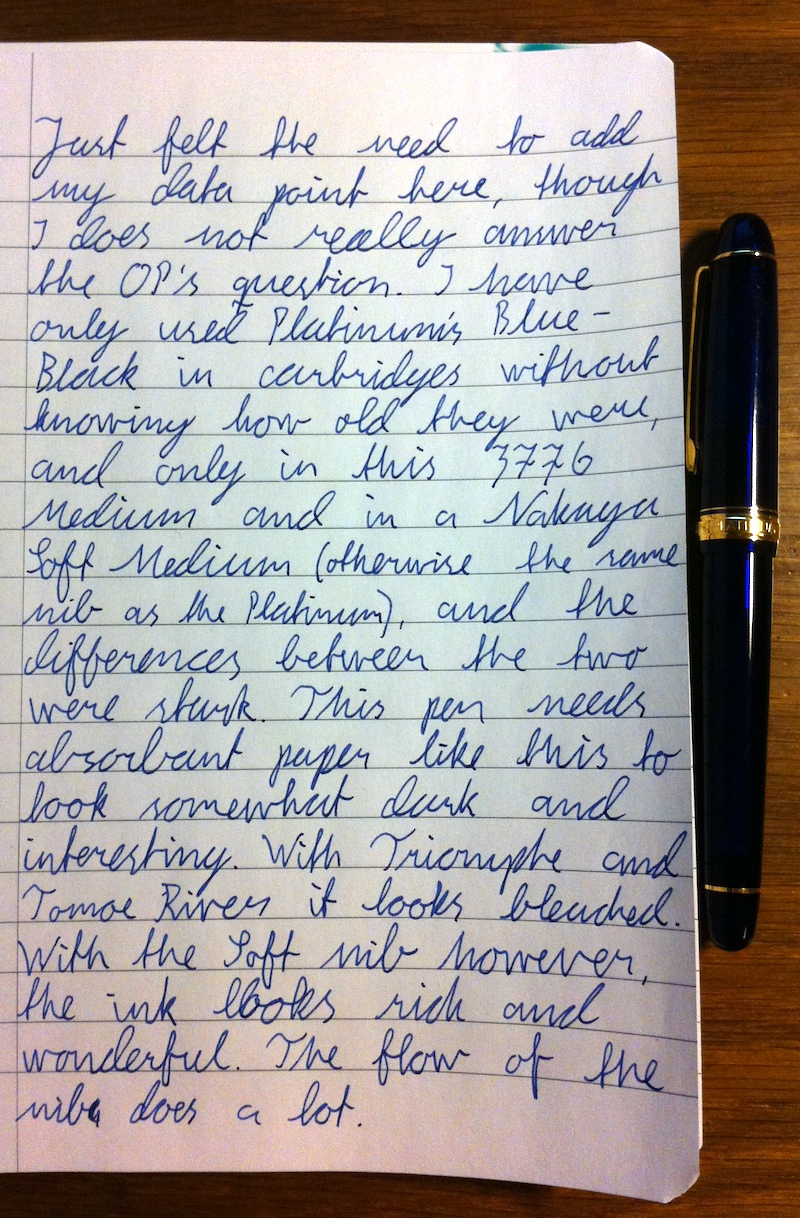 Just felt the need to add
my data point here, though
I does not really answer
the OP's question. I have
only used Platinum's Blue-
Black in cartridges without
knowing how old they were,
and only in this 3776
Medium and in a Nakaya
Soft Medium (otherwise the same
nib as the Platinum), and the
differences between the two
were stark. This pen needs
absorbant paper like this to
look somewhat dark and
interesting. With Triomphe and
Tomoe River it looks bleached.
With the Soft nib however,
the ink looks rich and
wonderful. The flow of the
nib does a lot.